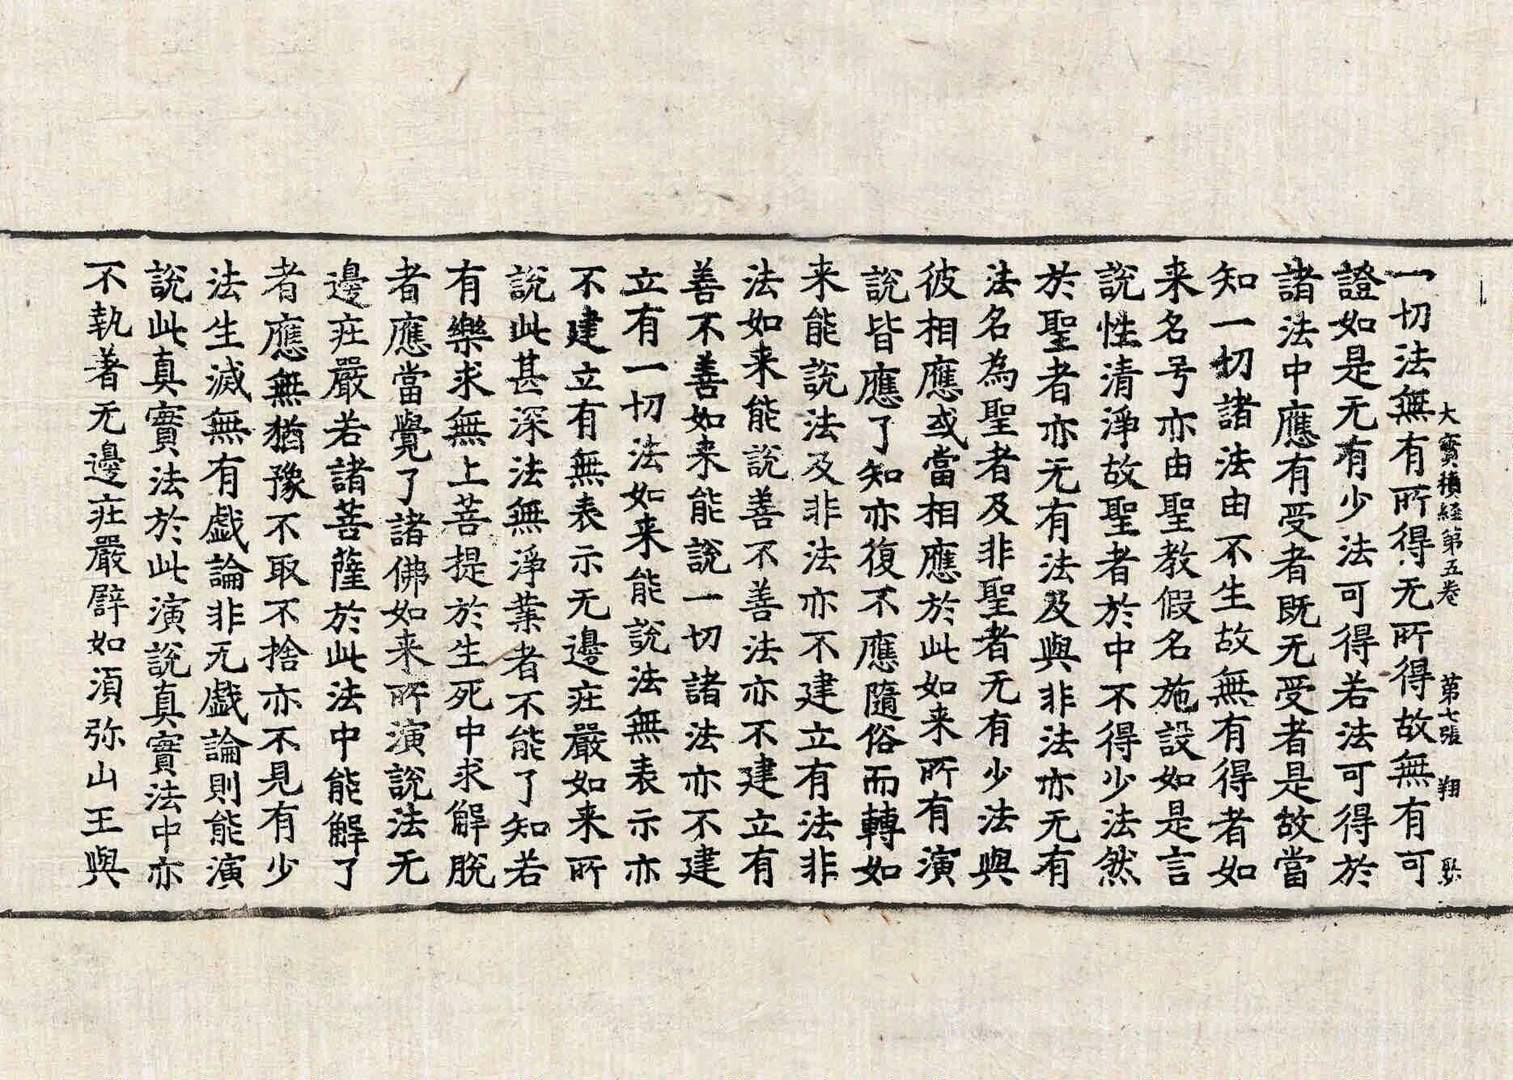 大寶積經第五卷 第七張 翔
一切法無有所得无所得故無有可
證如是无有少法可得若法可得於
諸法中應有受者既无受者是故當
知一切諸法由不生故無有得者如
来名号亦由聖教假名施設如是言
說性清淨故聖者於中不得少法然
於聖者亦无有法及與非法亦无有
法名為聖者及非聖者无有少法與
彼相應或當相應於此如来所有演
說皆應了知亦復不應隨俗而轉如
来能說法及非法亦不建立有法非
法如来能說善不善法亦不建立有
善不善如来能說一切諸法亦不建
立有一切法如来能說法無表示亦
不建立有無表示无邊疘嚴如来所
說此甚深法無淨業者不能了知若
有樂求無上菩提於生死中求解脫
者應當覺了諸佛如来所演說法无
邊疘嚴若諸菩薩於此法中能解了
者應無猶豫不取不捨亦不見有少
法生滅無有戲論非无戲論則能演
說此真實法於此演說真實法中亦
不執著无邊疘嚴譬如須弥山王與